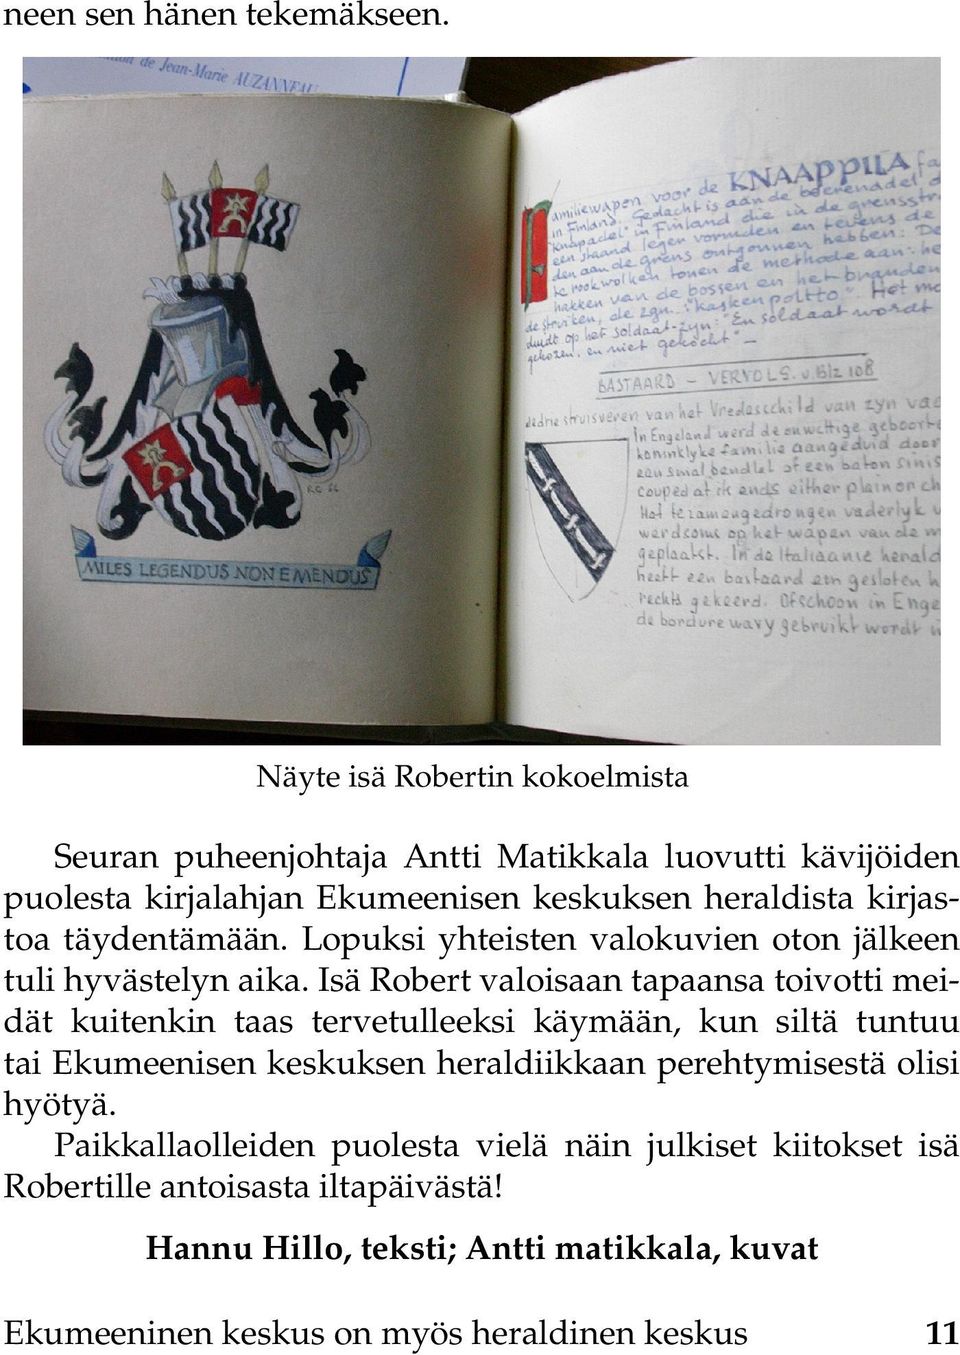 neen sen hänen tekemäkseen.
de Jean-Marie AUZANNEAU
R.C.
MILES LEGENDUS NON EMENDUS
Familiewapen voor de KNAAPPILA fa
in Finland. Gedacht is aan de boerenadel
"Knapadel" in Finland die in de grensstr
een staand leger vormden en tevens de
den aan de grens ontgonnen hebben: De
te rookwolken tonen de methode aan: he
hakken van de bossen en het branden
de struiken, de zgn: "Kasken poltto". Het mo
duidt op het soldaat-zyn: "En soldaat wordt
gekozen, en niet gekocht" —
BASTAARD – VERVOLG. v. Blz 108
de drie struisveren van het Vredesschild van zyn vad
In Engeland werd de onwettige geboorte
koninklyke familie aangeduid door
een smal bendlet of een baton sinis
couped at ends either plain or ch
Het tezamengedrongen vaderlyk
werd soms op het wapen van de m
geplaatst. In de Italiaanse herald
heeft een bastaard een gesloten h
rechts gekeerd. Ofschoon in Enge
de bordure wavy gebruikt wordt
Näyte isä Robertin kokoelmista
Seuran puheenjohtaja Antti Matikkala luovutti kävijöiden
puolesta kirjalahjan Ekumeenisen keskuksen heraldista kirjas-
toa täydentämään. Lopuksi yhteisten valokuvien oton jälkeen
tuli hyvästelyn aika. Isä Robert valoisaan tapaansa toivotti mei-
dät kuitenkin taas tervetulleeksi käymään, kun siltä tuntuu
tai Ekumeenisen keskuksen heraldiikkaan perehtymisestä olisi
hyötyä.
Paikkallaolleiden puolesta vielä näin julkiset kiitokset isä
Robertille antoisasta iltapäivästä!
Hannu Hillo, teksti; Antti matikkala, kuvat
Ekumeeninen keskus on myös heraldinen keskus 11